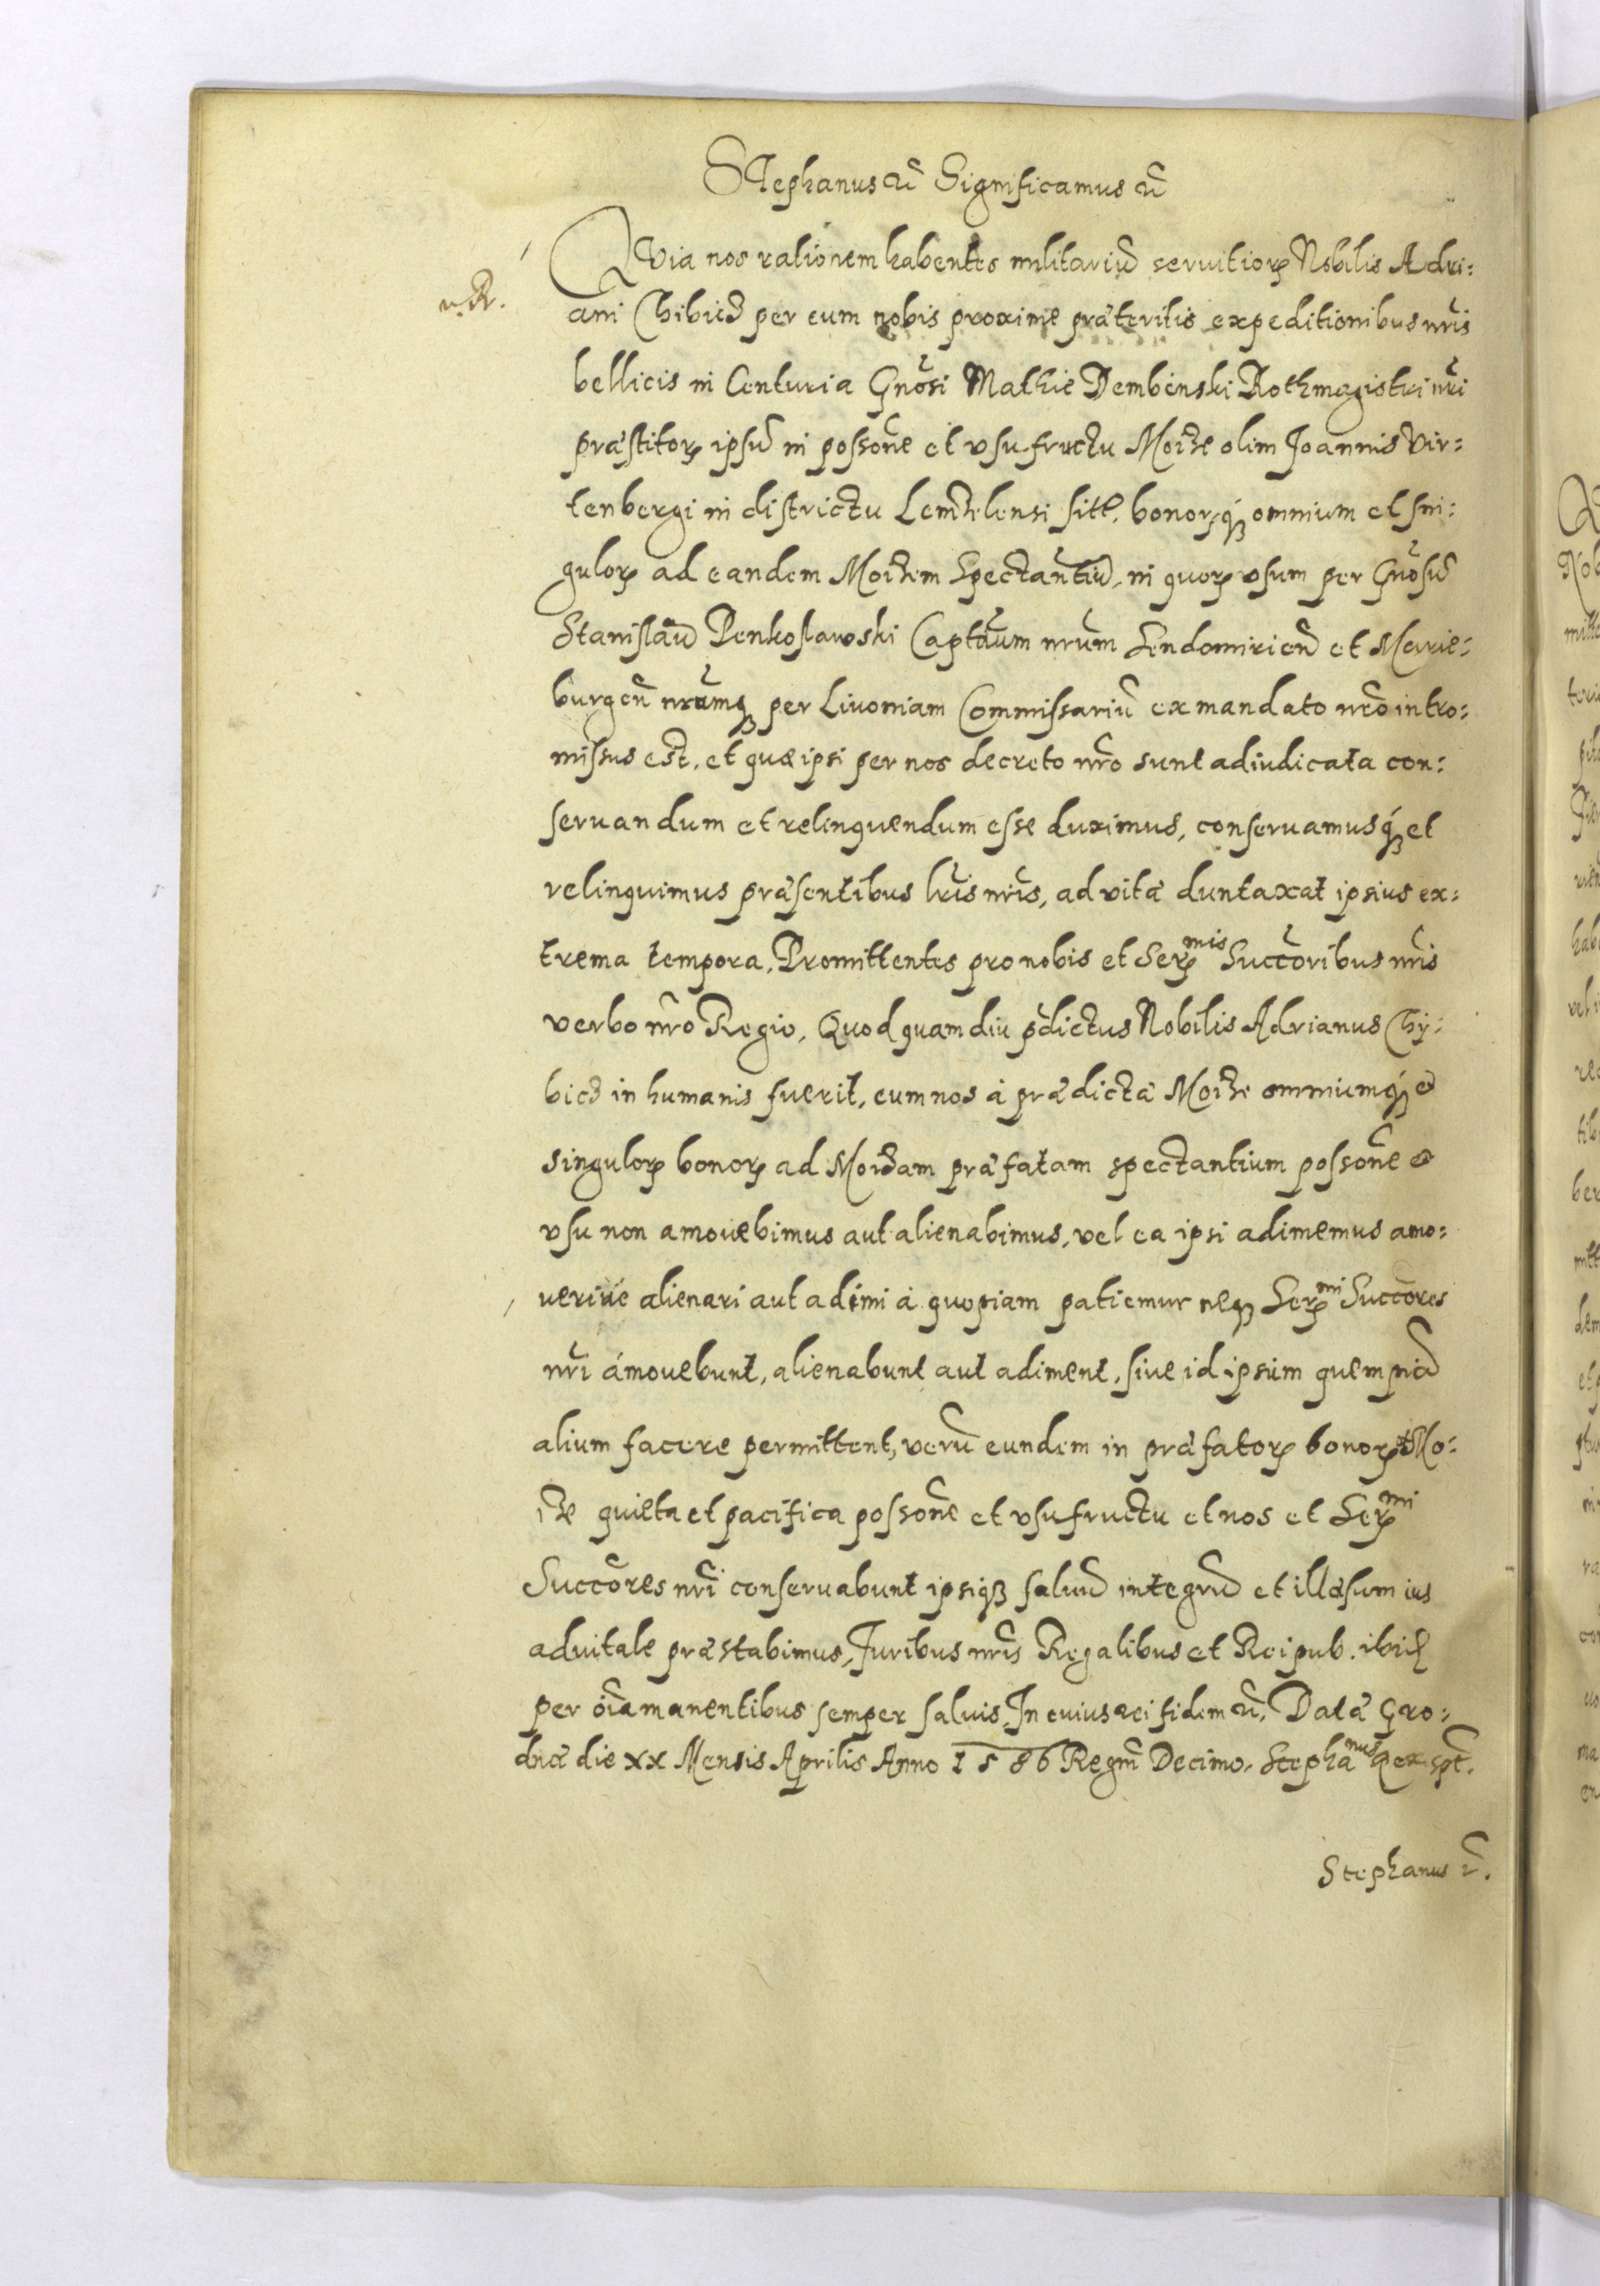 Stephanus etc̃ Significamus etc̃
Quia nos rationem habentes militariũ seruitioꝝ Nobilis Adri:
n. R.
ani Chibicz per eum nobis proxime præteritis expeditionibus nr̃is
bellicis in Centuria Gnõsi Mathie Dembinski Rothmagistri nr̃i
præstitoꝝ ipsũ in possõne et vsufructu Moize olim Joannis Vir:
tenbergi in districtu Lemzelensi sitæ, bonorꝝq́ꝫ omnium et sin:
guloꝝ ad eandem Moizem spectantiũ, in quoꝝ vsum per Gnõsũ
Stanislaũ Penkoslawski Captãum nr̃um Sendomirieñ et Marie:
burgeñ nr̃umqꝫ per Liuoniam Commissariũ ex mandato nr̃o intro:
missus est, et quæ ipsi per nos decreto nr̃o sunt adiudicata con:
seruandum et relinquendum esse duximus, conseruamusq́ꝫ et
relinquimus præsentibus lr̃is nr̃is, ad vitæ duntaxat ipsius ex:
trema tempora, Promittentes pro nobis et Serꝫmis Succõribus nr̃is
verbo nr̃o Regio, Quod quamdiu p̃dictus Nobilis Adrianus Chy:
bicz in humanis fuerit, eum nos à prædicta Moize omniumq́ꝫ et
singuloꝝ bonoꝝ ad Moizam præfatam spectantium possõne et
vsu non amouebimus aut alienabimus, vel ea ipsi adimemus amo:
ueriue alienari aut adimi à quopiam patiemur neqꝫ Serꝫmi Succõres
nr̃i amouebunt, alienabunt aut adiment, siue id ipsum quempiã
alium facere permittent, verũ eundem in præfatoꝝ bonoꝝ et Mo:
ize quieta et pacifica possõne et vsufructu et nos et Serꝫmi
Succõres nr̃i conseruabunt ipsiqꝫ saluũ integrũ et illæsum ius
aduitale præstabimus, Juribus nr̃is Regalibus et Reipub. ibid
per oĩa manentibus semper saluis, In cuius rei fidem etc̃, Datæ Gro:
dnæ die xx Mensis Aprilis Anno 1586 Regni Decimo. Stephanus Rex spt̃.
Stephanus R̃.